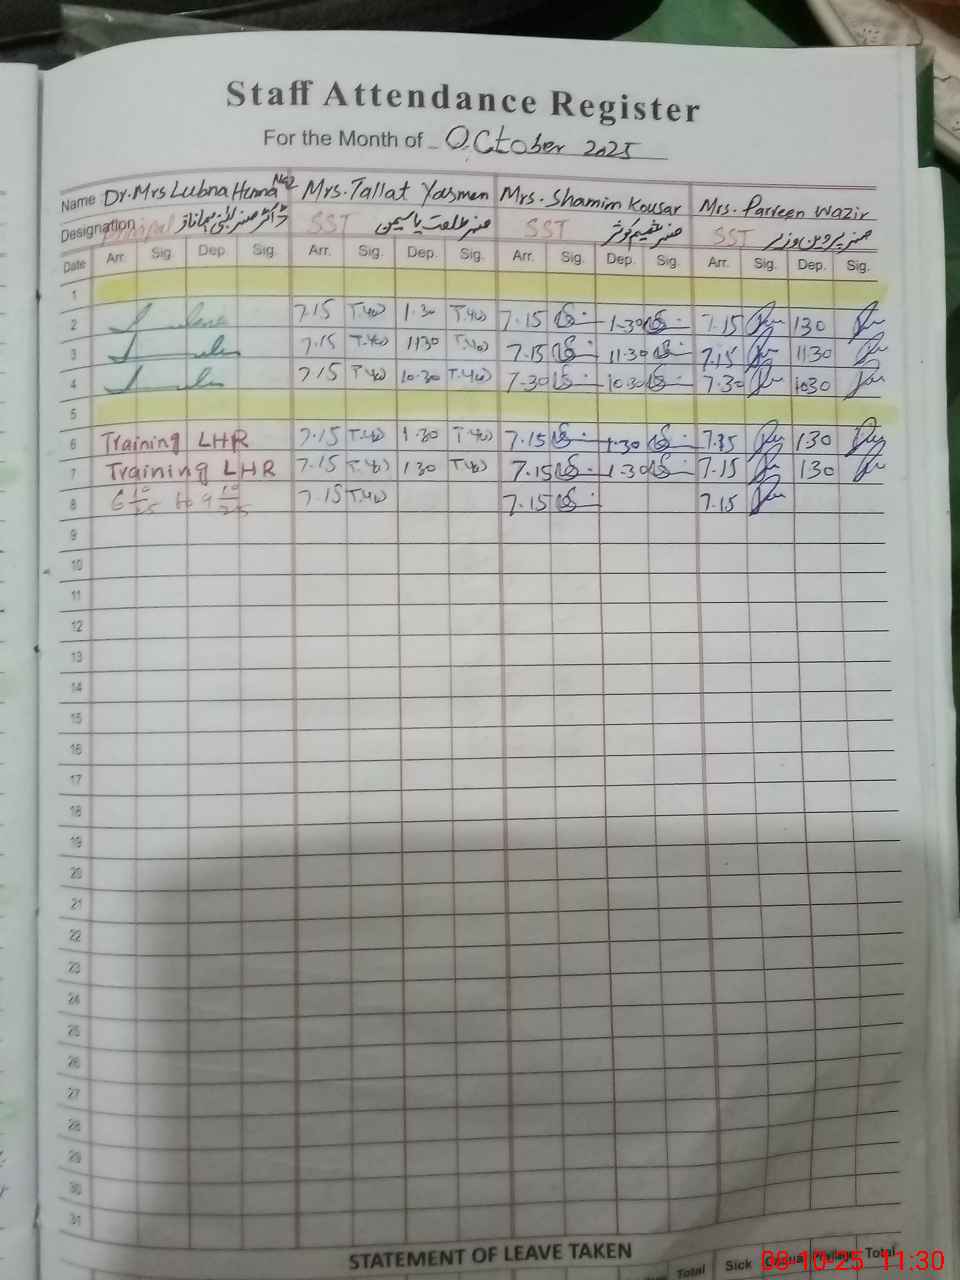 Staff Attendance Register
For the Month of October 2025
Name Dr. Mrs Lubna Mrs. Tallat Yasmen Mrs. Shamim Kousar Mrs. Parveen Wazir
Designation Principal ڈاکٹر مسز SST مسز طلعت یاسمین SST مسز شمیم کوثر SST مسز پروین وزیر
Date Arr. Sig. Dep. Sig. Arr. Sig. Dep. Sig. Arr. Sig. Dep. Sig. Arr. Sig. Dep. Sig.
1
2 7.15 1.30 7.15 1.30 7.15 130
3 7.15 1130 7.15 11.30 7.15 1130
4 7.15 10.30 7.30 10.30 7.30 1030
5
6 Training LHR 7.15 1.30 7.15 1.30 130
7 Training LHR 7.15 130 7.15 1.30 7.15 130
8 6 10/25 to 9 10/25 7.15 7.15 7.15
9
10
11
12
13
14
15
16
17
18
19
20
21
22
23
24
25
26
27
28
29
30
31
STATEMENT OF LEAVE TAKEN
Total Sick Casual Privilege Total
08-10-25 11:30